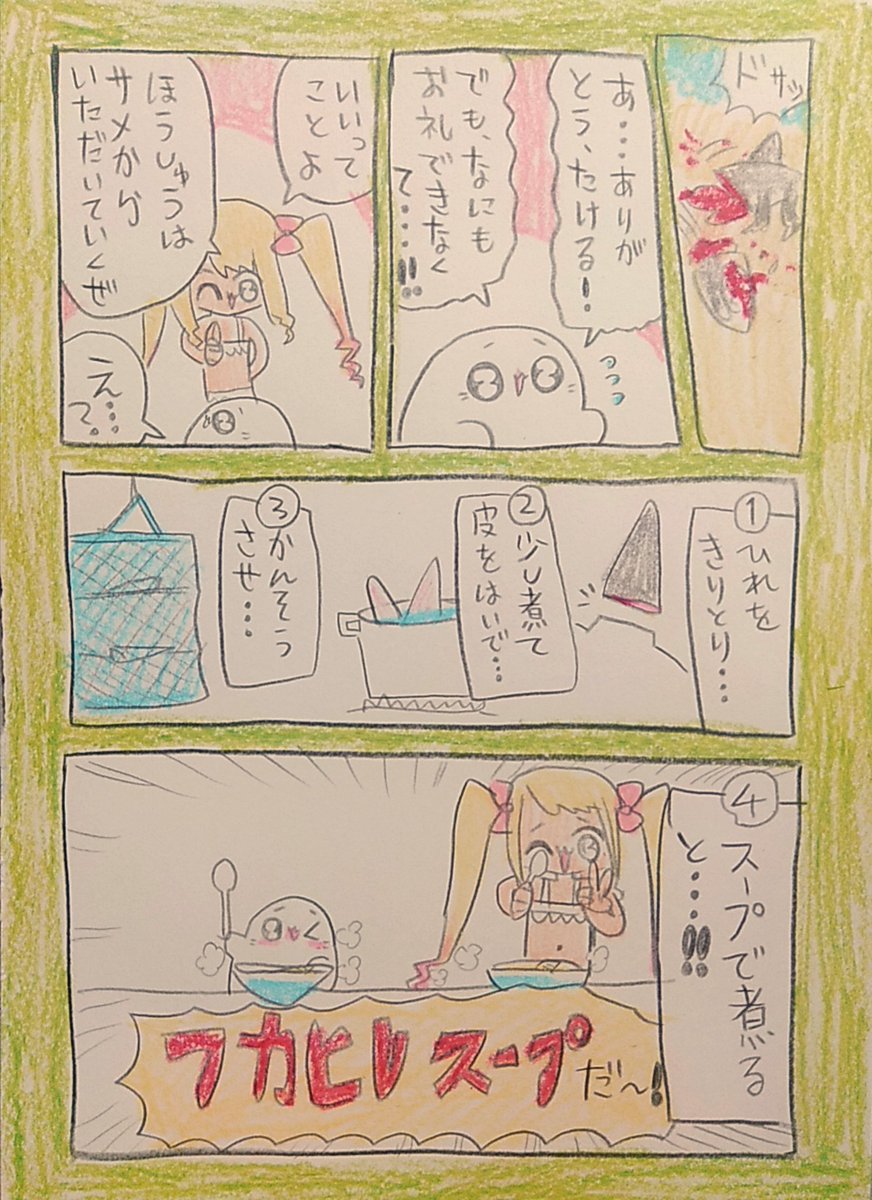 ドサッ
あ…ありが
とう、たける!
でも、なにも
お礼できなく
て…!!
いいって
ことよ
ほうしゅうは
サメから
いただいていくぜ
え…
?
①ひれを
きりとり…
②少し煮て
皮をはいで…
③かんそう
させ…
④スープで煮る
と…!!
フカヒレスープだ~!